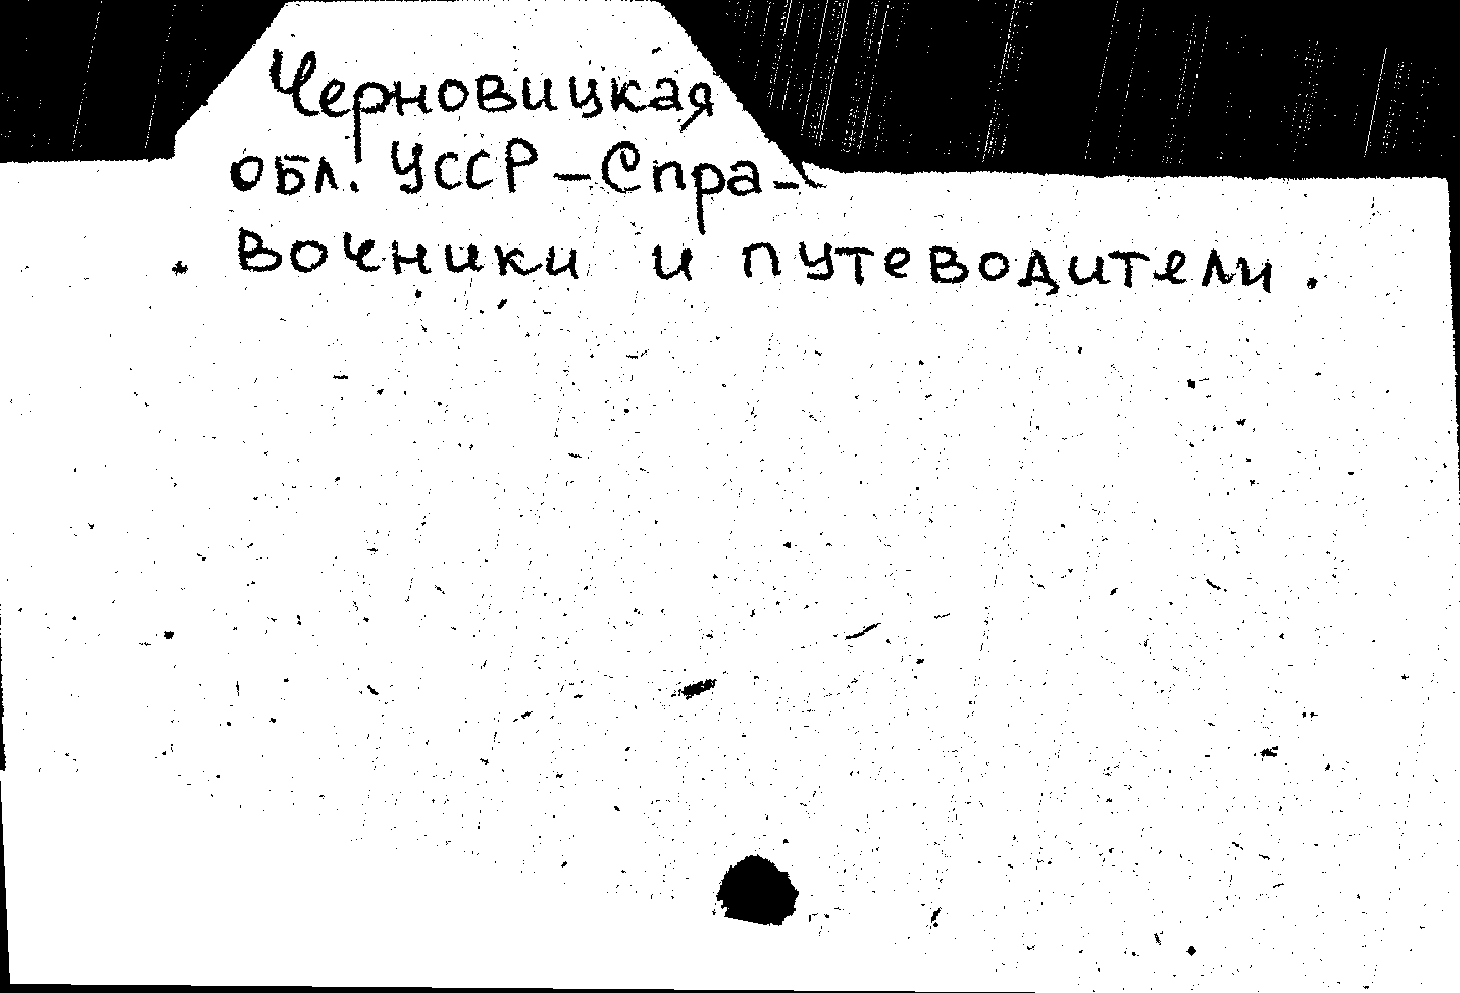 Черновицкая
обл. УССР – Спра-
вочники и путеводители.